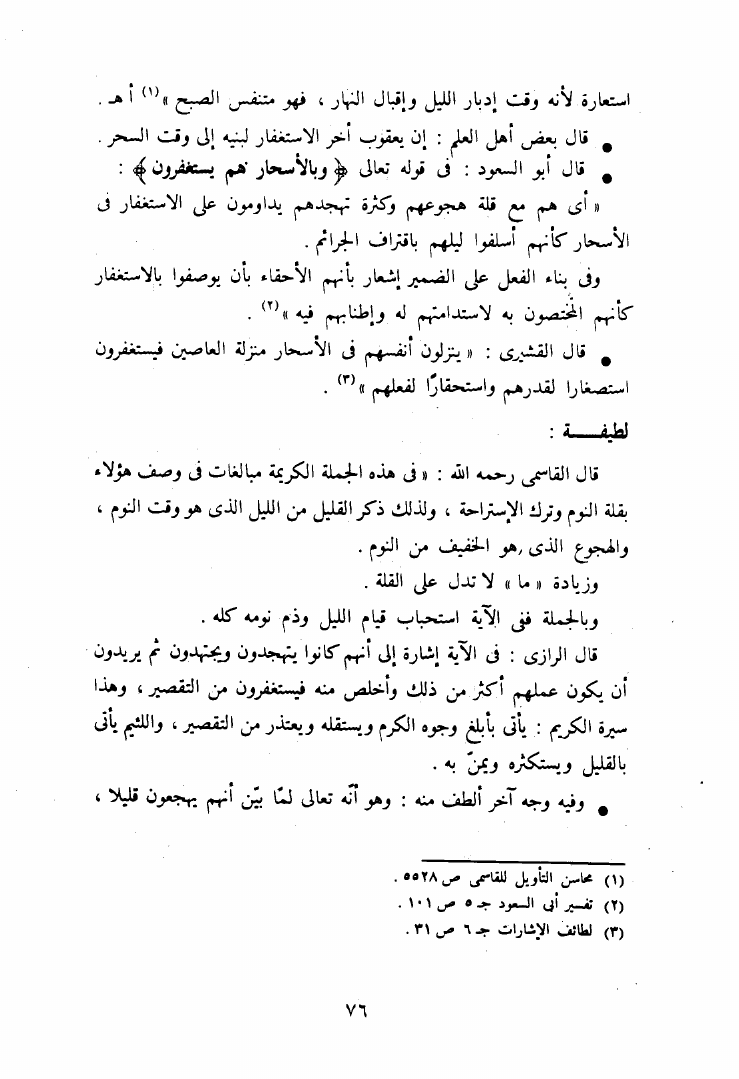 استعارة لأنه وقت إدبار الليل وإقبال النهار ، فهو متنفس الصبح »(١) أ هـ .
● قال بعض أهل العلم : إن يعقوب أخر الاستغفار لبنيه إلى وقت السحر .
● قال أبو السعود : فى قوله تعالى ﴿ وبالأسحار هم يستغفرون ﴾ :
« أى هم مع قلة هجوعهم وكثرة تهجدهم يداومون على الاستغفار فى
الأسحار كأنهم أسلفوا ليلهم باقتراف الجرائم .
وفى بناء الفعل على الضمير إشعار بأنهم الأحقاء بأن يوصفوا بالاستغفار
كأنهم المختصون به لاستدامتهم له وإطنابهم فيه »(٢) .
● قال القشيرى : « ينزلون أنفسهم فى الأسحار منزلة العاصين فيستغفرون
استصغارا لقدرهم واستحقارًا لفعلهم »(٣) .
لطيفـــة :
قال القاسمى رحمه الله : « فى هذه الجملة الكريمة مبالغات فى وصف هؤلاء
بقلة النوم وترك الإستراحة ، ولذلك ذكر القليل من الليل الذى هو وقت النوم ،
والهجوع الذى هو الخفيف من النوم .
وزيادة « ما » لا تدل على القلة .
وبالجملة ففى الآية استحباب قيام الليل وذم نومه كله .
قال الرازى : فى الآية إشارة إلى أنهم كانوا يتهجدون ويجتهدون ثم يريدون
أن يكون عملهم أكثر من ذلك وأخلص منه فيستغفرون من التقصير ، وهذا
سيرة الكريم : يأتى بأبلغ وجوه الكرم ويستقله ويعتذر من التقصير ، واللئيم يأتى
بالقليل ويستكثره ويمنّ به .
● وفيه وجه آخر ألطف منه : وهو أنّه تعالى لمّا بيّن أنهم يهجعون قليلا ،
(١) محاسن التأويل للقاسمى ص ٥٥٢٨ .
(٢) تفسير أبى السعود جـ ٥ ص ١٠١ .
(٣) لطائف الإشارات جـ ٦ ص ٣١ .
٧٦